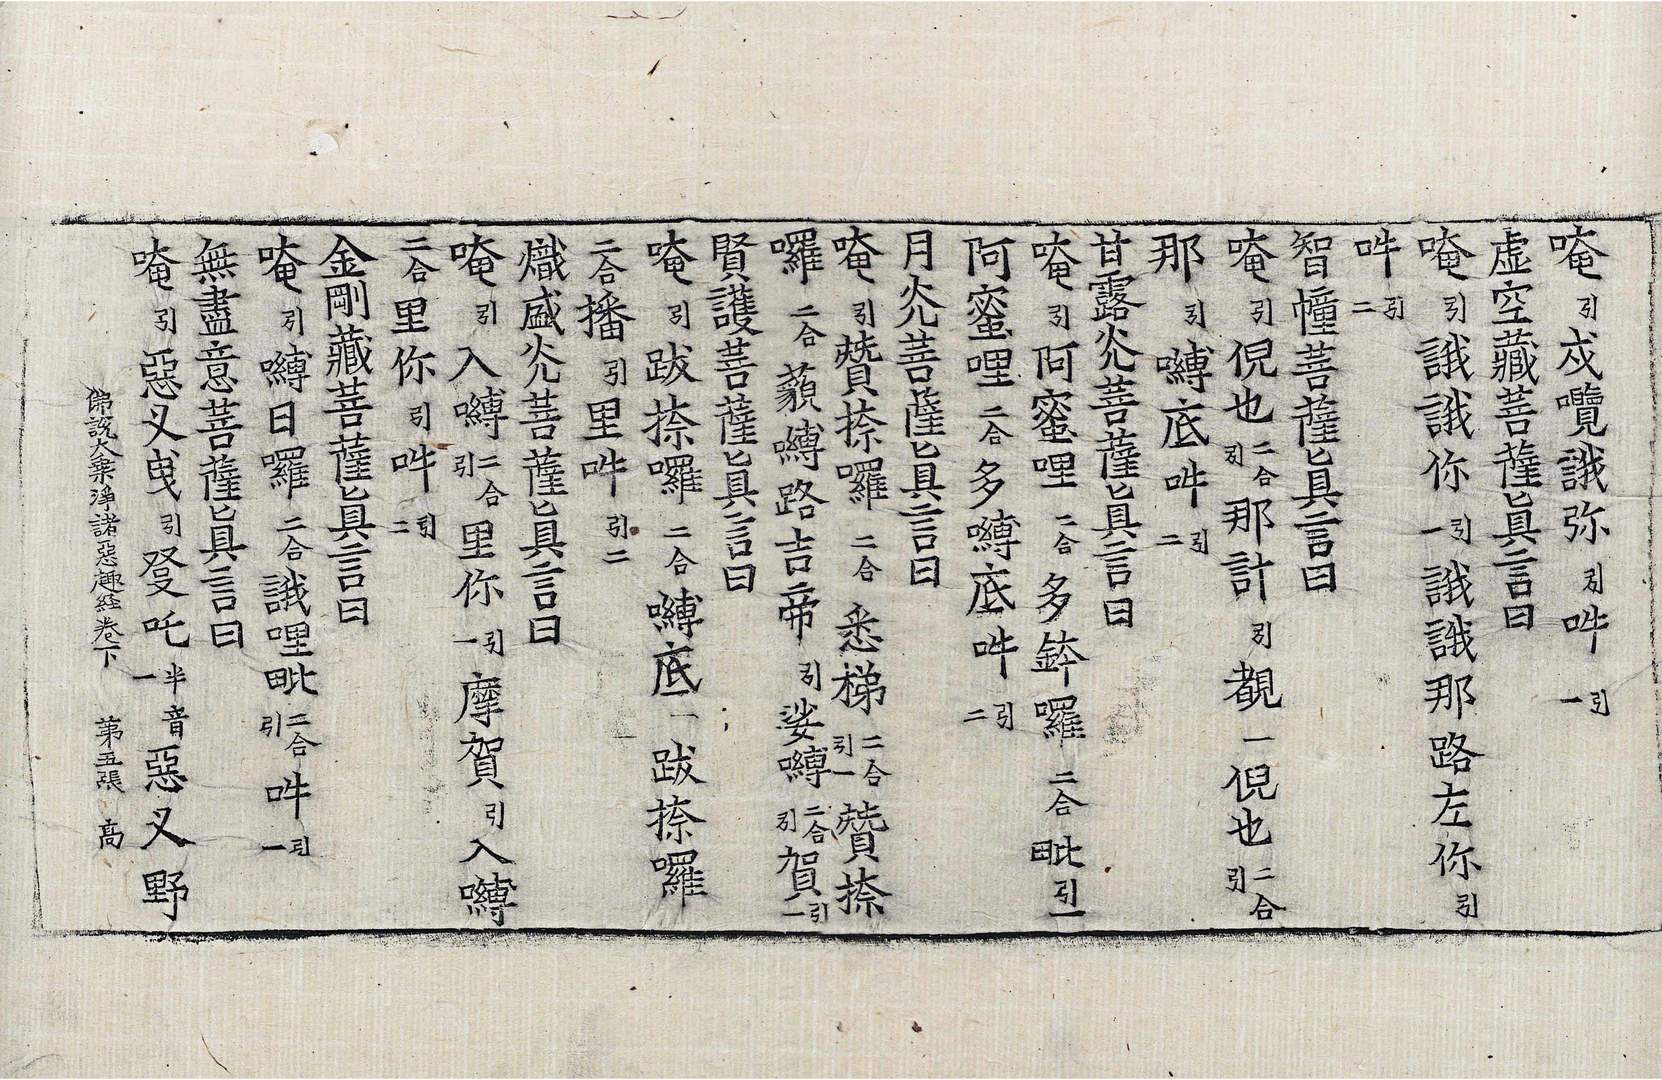 唵引戍囕誐弥引吽引一
虛空藏菩薩真言曰
唵引誐誐你引一誐誐那路左你引
吽引二
智幢菩薩真言曰
唵引倪也二合引那計引覩一倪也二合引
那引嚩底吽引二
甘露光菩薩真言曰
唵引阿蜜哩二合多鉢囉二合毗引一
阿蜜哩二合多嚩底吽引二
月光菩薩真言曰
唵引贊捺囉二合悉梯二合引一贊捺
囉二合藐嚩路吉帝引娑嚩二合引賀引一
賢護菩薩真言曰
唵引跋捺囉二合嚩底一跋捺囉
二合播引里吽引二
熾盛光菩薩真言曰
唵引入嚩二合引里你引一摩賀引入嚩
二合里你引吽引二
金剛藏菩薩真言曰
唵引嚩日囉二合誐哩毗二合引吽引一
無盡意菩薩真言曰
唵引惡叉曳引發吒半音一惡叉野
佛說大乘淨諸惡趣經卷下　第五張　高